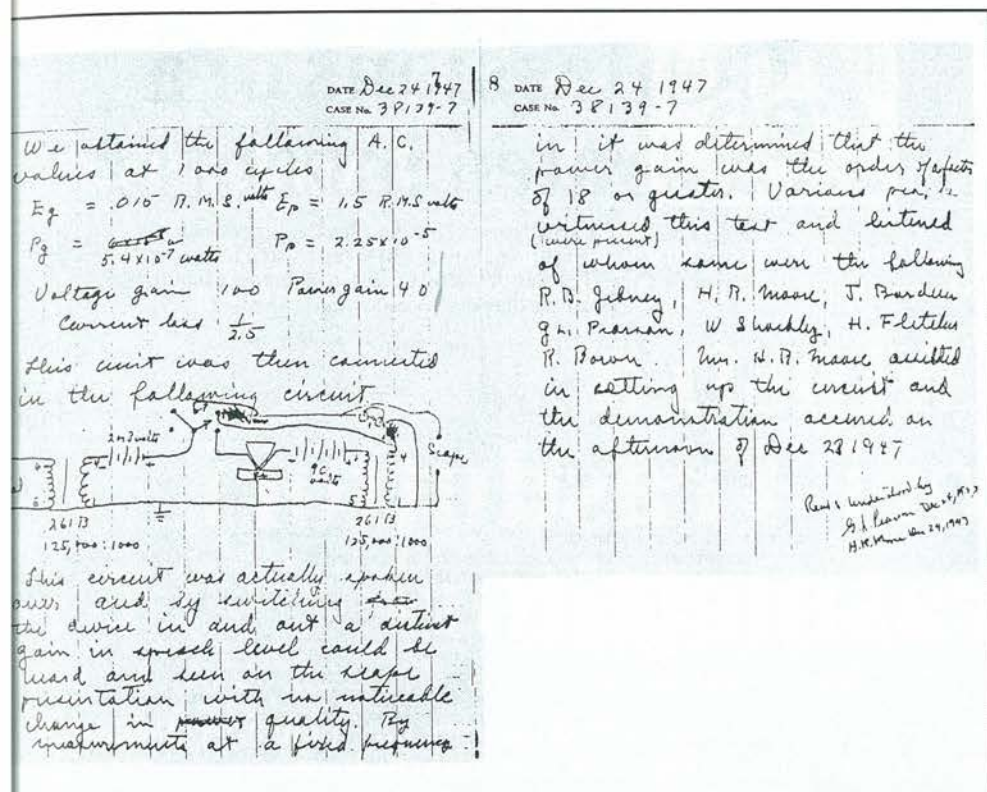 DATE Dec 24 1947 7
CASE No. 38139-7
We attained the following A.C.
values at 1000 cycles
Eg = .015 R.M.S. volts Ep = 1.5 R.M.S volts
Pg = 5.4 x 10-7 watts Pp = 2.25 x 10-5
Voltage gain 100 Power gain 40
Current loss 1/2.5
This unit was then connected
in the following circuit
volts
Scope
4
5
1
261B 261B
125,000:1000 125,000:1000
This circuit was actually spoken
over and by switching
the device in and out a distinct
gain in speech level could be
heard and seen on the scope
presentation with no noticeable
change in quality. By
measurements at a fixed frequency
8 DATE Dec 24 1947
CASE No. 38139-7
in it was determined that the
power gain was the order of
of 18 or greater. Various
witnessed this test and listened
(were present)
of whom some were the following
R.B. Gibney, H.R. Moore, J. Bardeen
G.L. Pearson, W Shockley, H. Fletcher
R. Bown Mr. H.R. Moore assisted
in setting up the circuit and
the demonstration occured on
the afternoon of Dec 23 1947
Read & Understood by
G.L. Pearson Dec 24, 1947
H.R. Moore Dec 24, 1947